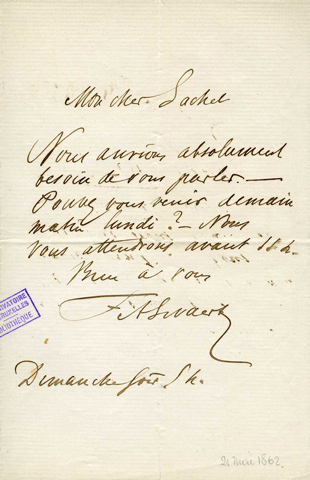 Mon cher Sachet
Nous aurions absolument
besoin de vous parler. —
Pouvez vous venir demain
matin lundi ? — Nous
vous attendrons avant 11 h.
Bien à vous
FASwaert
Dimanche soir 5 h.
VATOIRE
RUXELLES
LIOTHÈQUE
1862